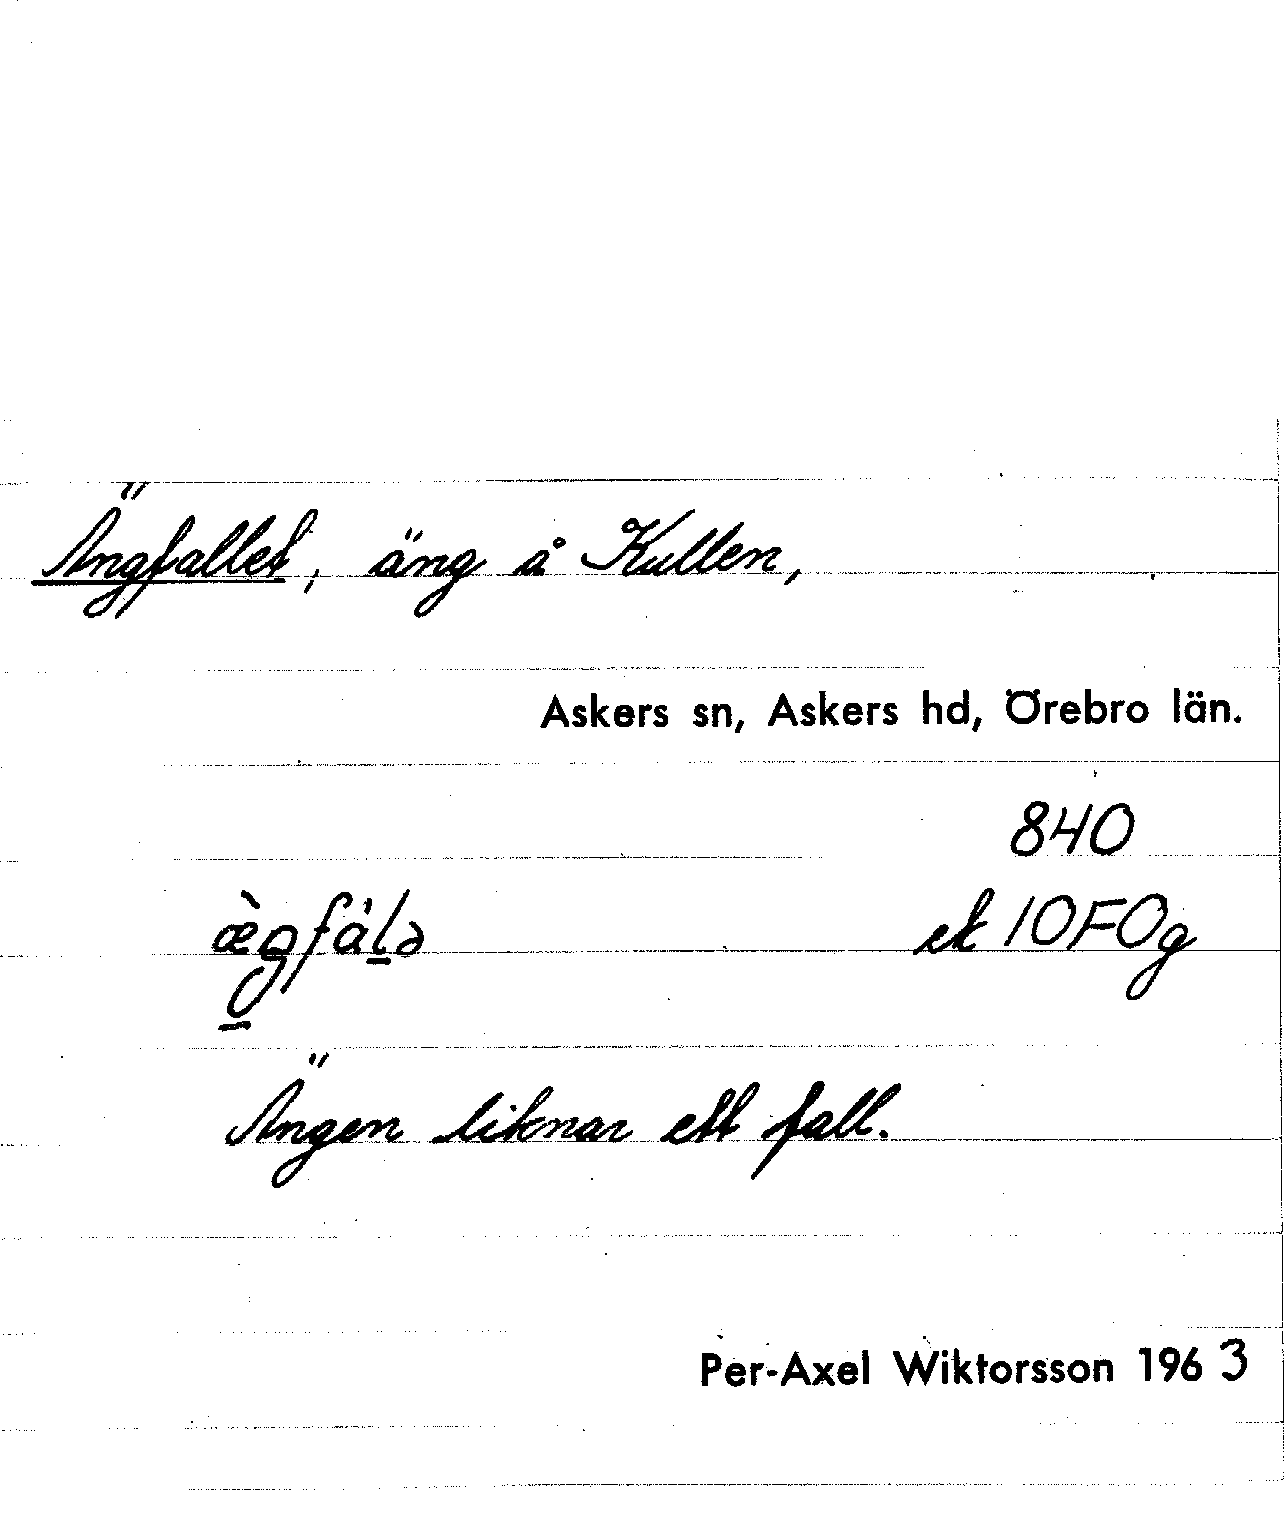 Ängfallet, äng å Kullen,
Askers sn, Askers hd, Örebro län.
840
ek 10F0g
Ängen liknar ett fall.
Per-Axel Wiktorsson 1963